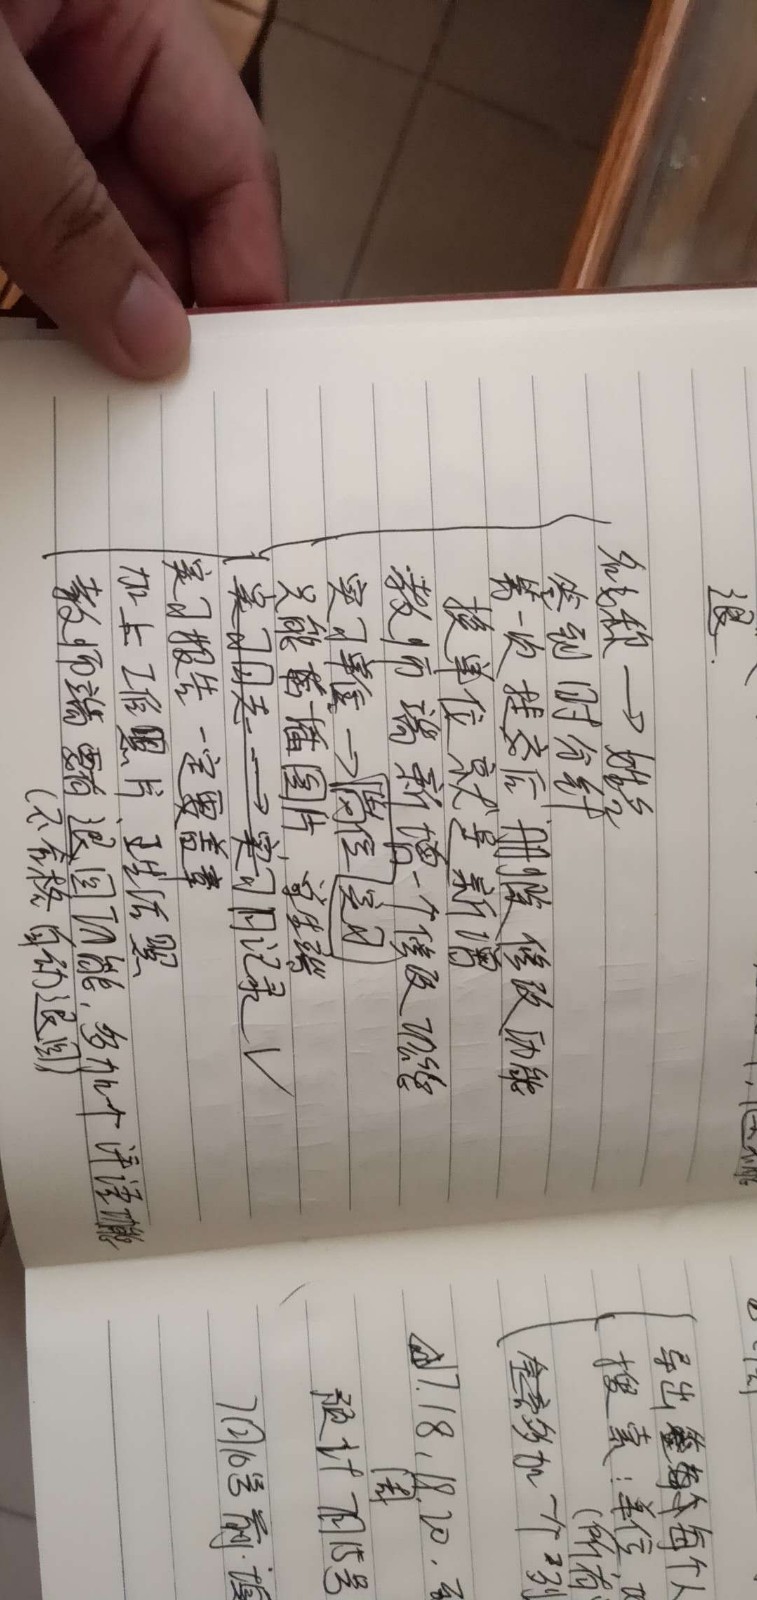 退.
名称 → 姓名
签到 时分针.
第一次提交后 删除 修改 功能
换单位就是新增
教师端新增一个修改功能
实习单位 → 岗位 实习
只能插图片,学生端
实习日志 → 实习月记录 ✓
实习报告一定要盖章
加上工作照片、生活照
教师端要有退回功能,多加个评语功能
(不合格自动退回)
导出 每个人
搜索:单位,
(所有
多加一个 列
17.18,19.20.
周
预计7月15号
7月10号前.填